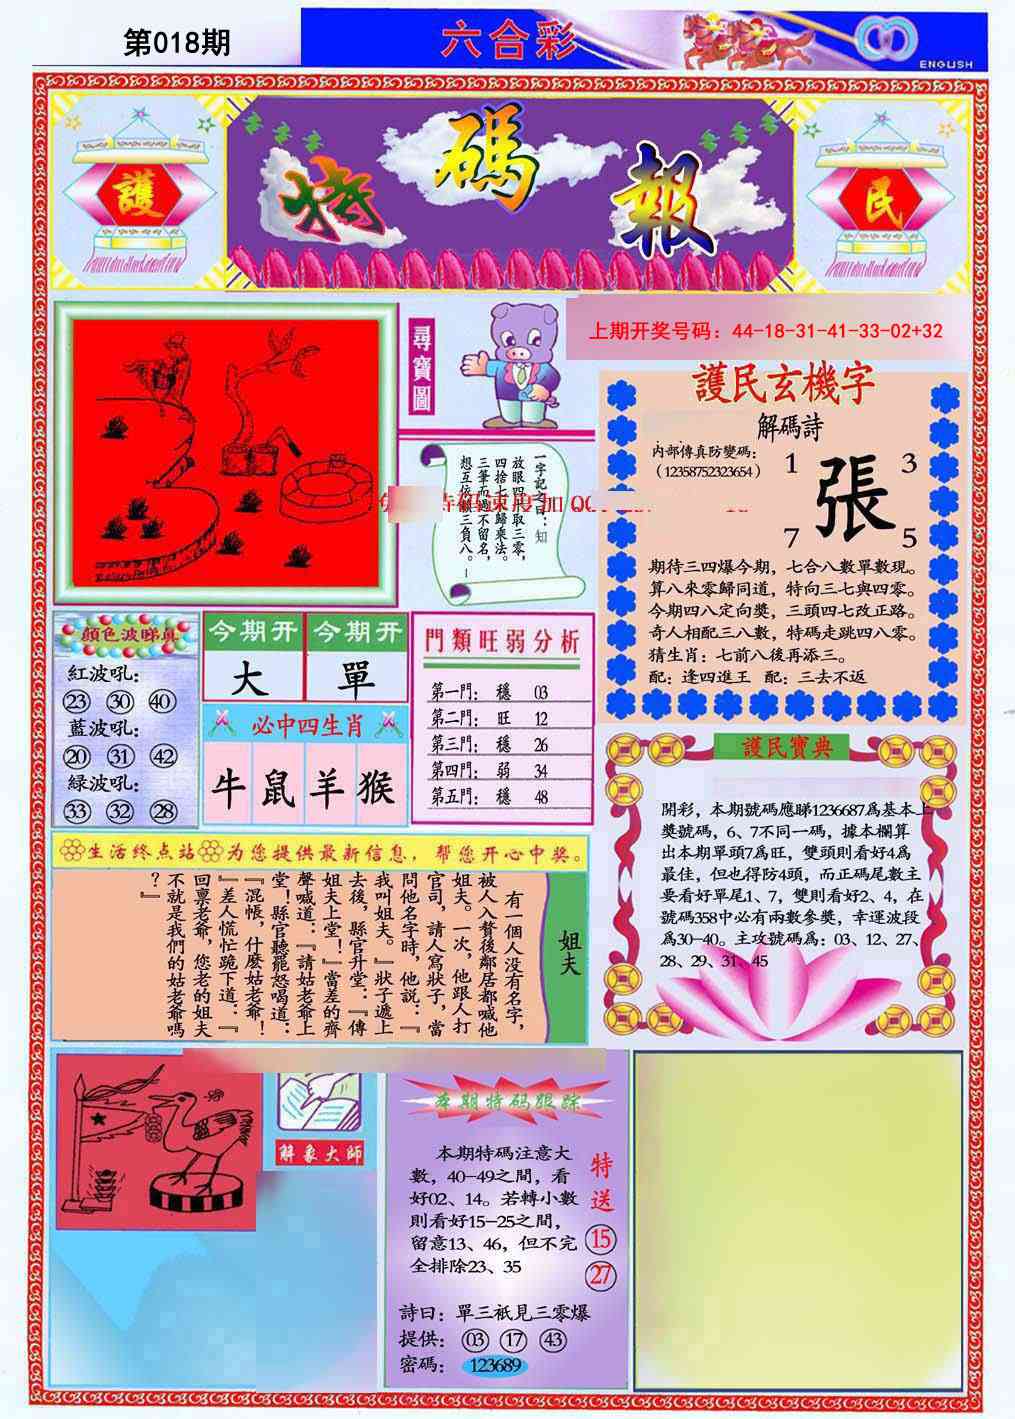 第018期
六合彩
ENGLISH
護
特碼報
民
尋寶圖
上期开奖号码：44-18-31-41-33-02+32
一字記之曰：知
放眼四�取三零，
四捨七�歸乘法。
三筆而過不留名，
想互依賴三負八。
護民玄機字
解碼詩
内部傳真防變碼：
（12358752323654）
1 3
張
7 5
期待三四爆今期，七合八數單數現。
算八來零歸同道，特向三七與四零。
今期四八定向獎，三頭四七改正路。
奇人相配三八數，特碼走跳四八零。
猜生肖：七前八後再添三。
配：逢四進王 配：三去不返
顔色波睇真
紅波吼：
23 30 40
藍波吼：
20 31 42
緑波吼：
33 32 28
今期开 今期开
大 單
必中四生肖
牛 鼠 羊 猴
門類旺弱分析
第一門： 穩 03
第二門： 旺 12
第三門： 穩 26
第四門： 弱 34
第五門： 穩 48
護民寶典
開彩，本期號碼應睇1236687爲基本上
獎號碼，6、7不同一碼，據本欄算
出本期單頭7爲旺，雙頭則看好4爲
最佳，但也得防4頭，而正碼尾數主
要看好單尾1、7，雙則看好2、4，在
號碼358中必有兩數參獎，幸運波段
爲30-40。主攻號碼爲：03、12、27、
28、29、31、45
生活终点站 为您提供最新信息，帮您开心中奖。
姐夫
有一個人没有名字，
被人入贅後鄰居都喊他
姐夫。一次，他跟人打
官司，請人寫狀子，當
問他名字時，他説：『
我叫姐夫。』狀子遞上
去後，縣官升堂：『傳
姐夫上堂！』當差的齊
聲喊道：『請姑老爺上
堂！縣官聽罷怒喝道：
『混帳，什麽姑老爺！
』差人慌忙跪下道：『
回禀老爺，您老的姐夫
不就是我們的姑老爺嗎
？』
解象大師
本期特码跟踪
本期特碼注意大
數，40-49之間，看
好02、14。若轉小數
則看好15-25之間，
留意13、46，但不完
全排除23、35
特送
15
27
詩曰：單三祇見三零爆
提供： 03 17 43
密碼： 123689